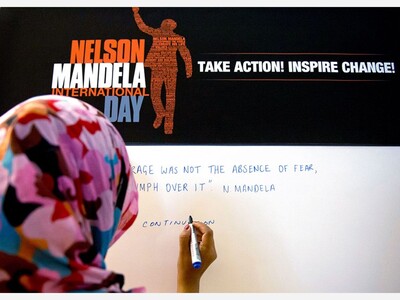 NELSON
MANDELA
INTERNATIONAL
DAY
TAKE ACTION! INSPIRE CHANGE!
WAS NOT THE ABSENCE OF FEAR,
OVER IT" N. MANDELA